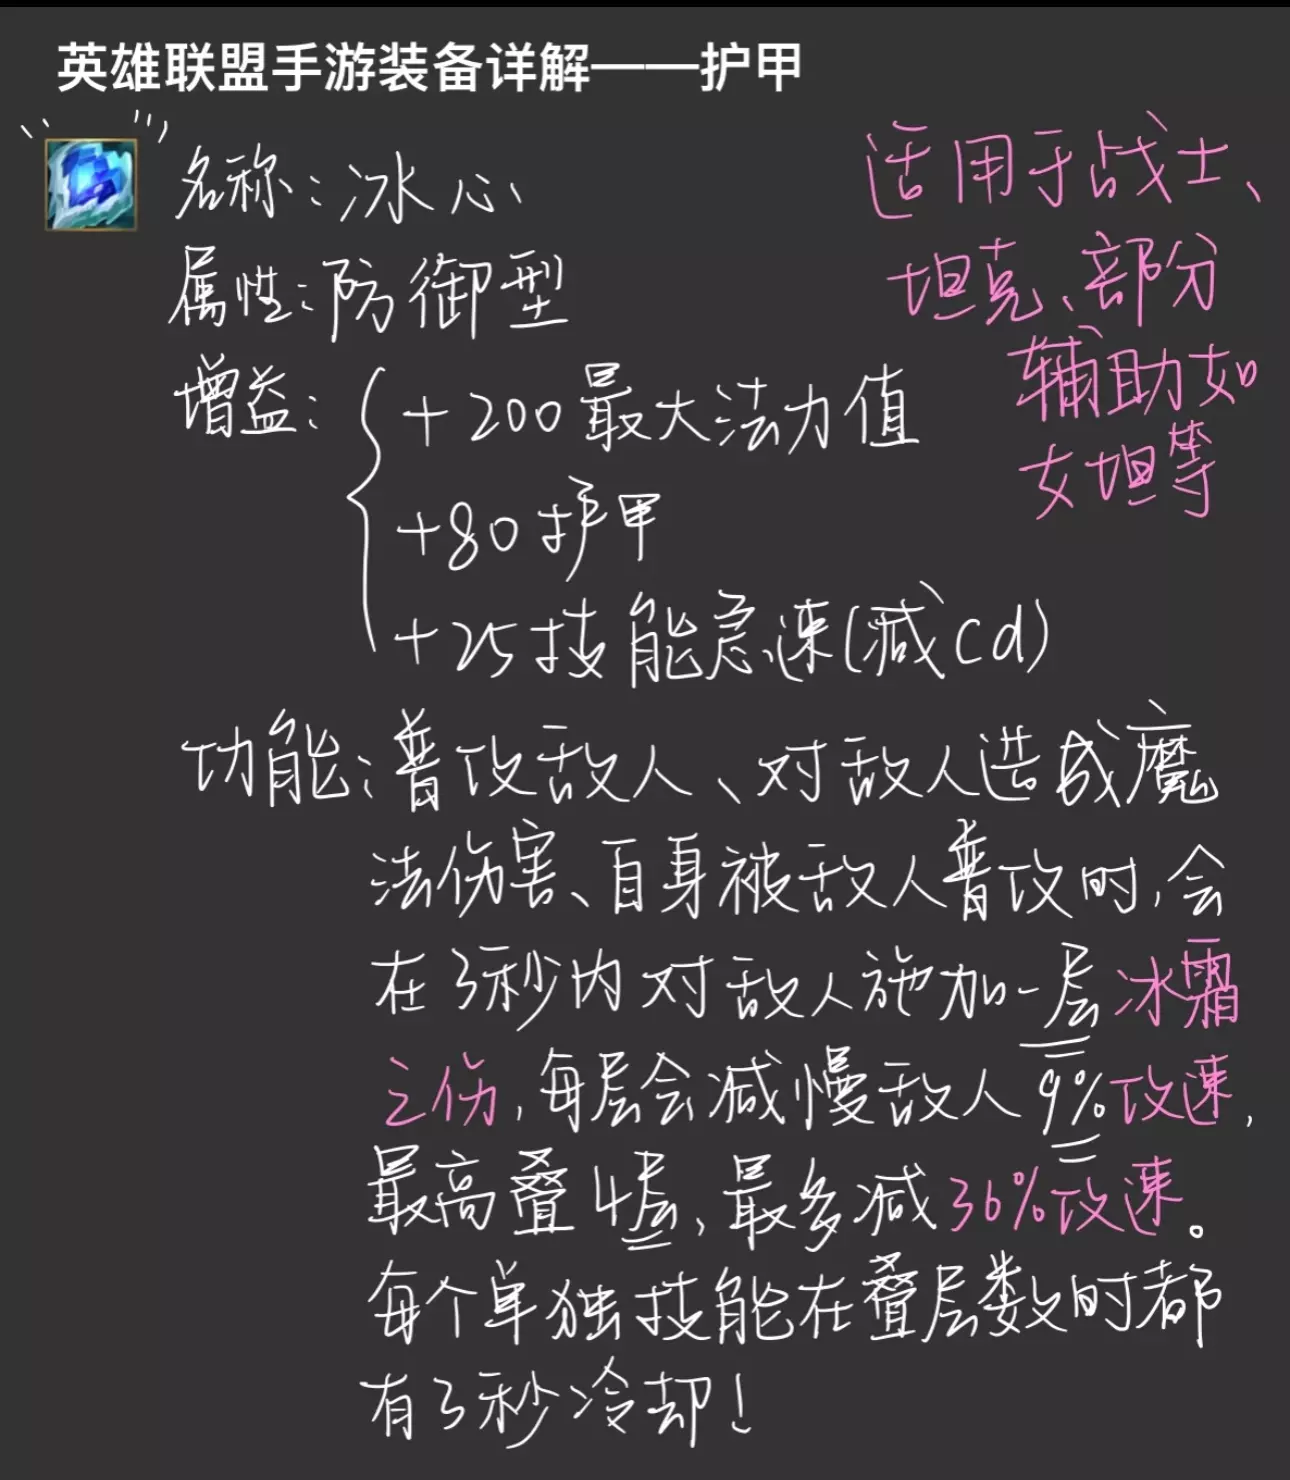 英雄联盟手游装备详解——护甲
名称:冰心
属性:防御型
增益:
+200最大法力值
+80护甲
+25技能急速(减cd)
适用于战士、
坦克、部分
辅助如
女坦等
功能:普攻敌人、对敌人造成魔
法伤害、自身被敌人普攻时,会
在3秒内对敌人施加一层冰霜
之伤,每层会减慢敌人9%攻速,
最高叠4层,最多减36%攻速。
每个单独技能在叠层数时都
有3秒冷却!